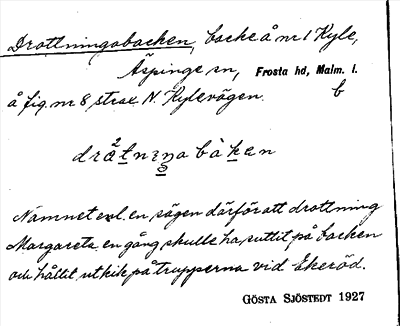 Drottningabacken, backe å nr 1 Kyle,
Äspinge sn, Frosta hd, Malm. l.
å fig. nr 8 strax N. Kylevägen. b
Namnet enl. en sägen därför att drottning
Margareta en gång skulle ha suttit på backen
och hållit utkik på trupperna vid Ekeröd.
GÖSTA SJÖSTEDT 1927